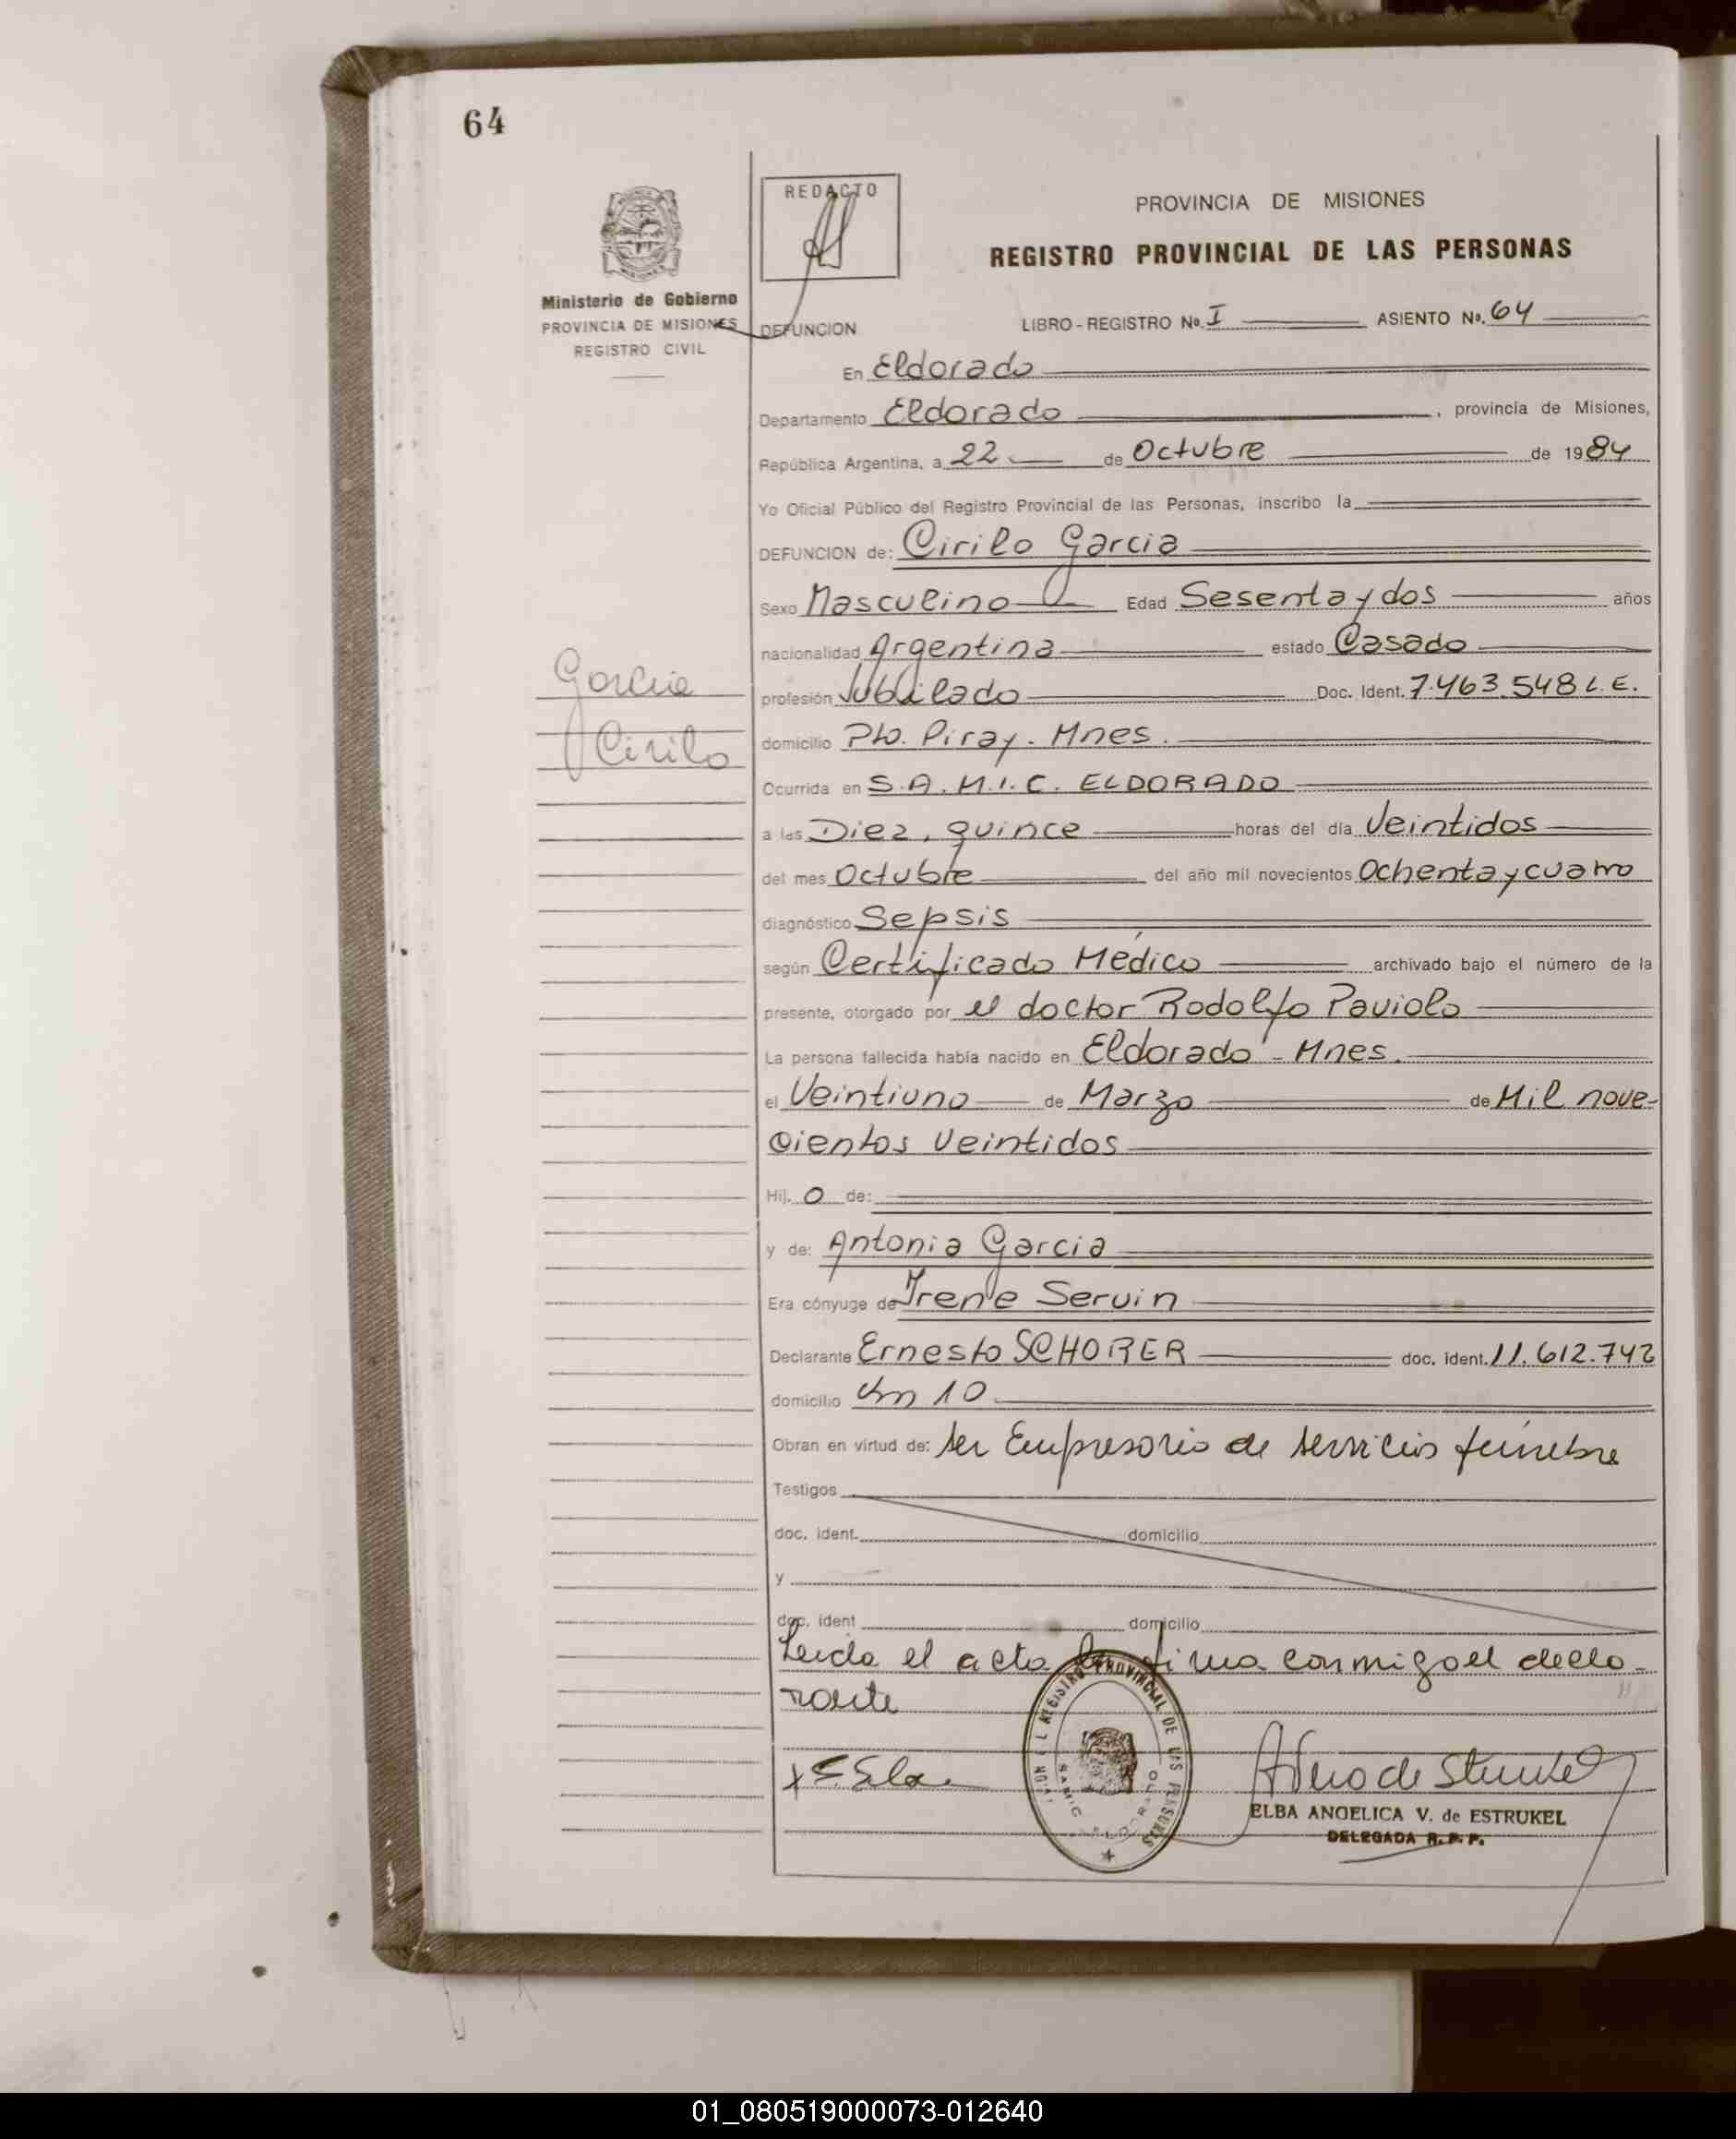 64
REDACTO
PROVINCIA DE MISIONES
REGISTRO PROVINCIAL DE LAS PERSONAS
Ministerio de Gobierno
PROVINCIA DE MISIONES
REGISTRO CIVIL
DEFUNCION LIBRO - REGISTRO No. I ASIENTO No. 64
En Eldorado
Departamento Eldorado, provincia de Misiones,
República Argentina, a 22 de Octubre de 1984
Yo Oficial Público del Registro Provincial de las Personas, inscribo la
DEFUNCION de: Cirilo Garcia
Sexo Masculino Edad Sesenta y dos años
nacionalidad Argentina estado Casado
Garcia
Cirilo
profesión Jubilado Doc. Ident. 7.463.548 L.E.
domicilio Pto. Piray. Mnes.
Ocurrida en S.A.M.I.C. ELDORADO
a las Diez, quince horas del día Veintidos
del mes Octubre del año mil novecientos Ochenta y cuatro
diagnóstico Sepsis
según Certificado Médico archivado bajo el número de la
presente, otorgado por el doctor Rodolfo Paviolo
La persona fallecida había nacido en Eldorado - Mnes.
el Veintiuno de Marzo de Mil nove-
cientos Veintidos
Hij. o de:
y de: Antonia Garcia
Era cónyuge de Irene Servin
Declarante Ernesto SCHORER doc. ident. 11.612.742
domicilio Km 10
Obran en virtud de: ser Empresario de servicios fúnebre
Testigos
doc. ident. domicilio
y
doc. ident domicilio
Leida el acta la firma conmigo el decla-
rante
REGISTRO PROVINCIAL DE LAS PERSONAS
SAMIC ELDORADO
ELBA ANGELICA V. de ESTRUKEL
DELEGADA R.P.P.
01_080519000073-012640